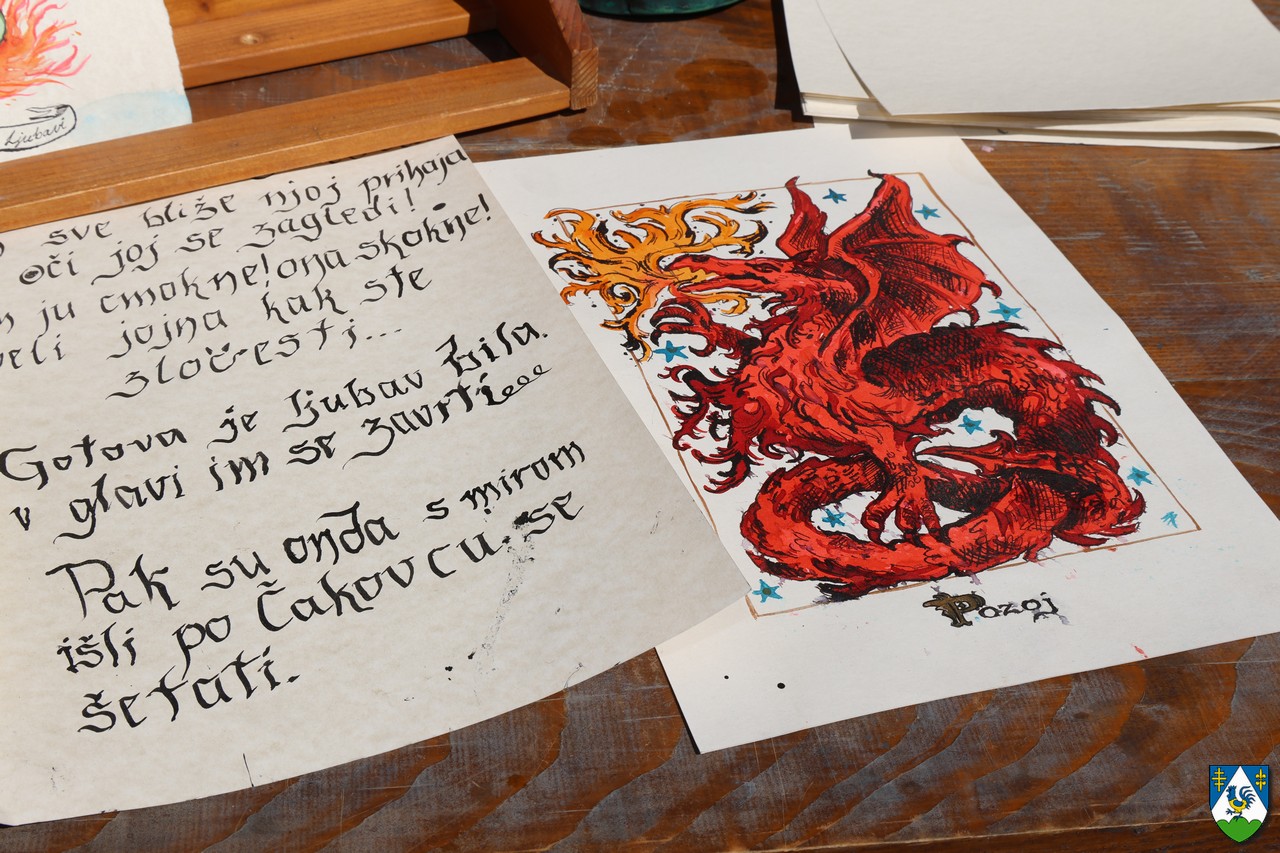 Ljubavi
sve bliže njoj prihaja
oči joj se zagledi!
ju cmokne! ona skokne!
veli jojna kak ste
zločesti...
Gotova je ljubav bila.
v glavi im se zavrti
Pak su onda s mirom
išli po Čakovcu se
šetati.
Pozoj